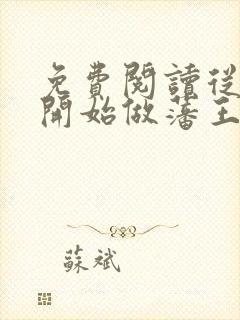 免費閱讀從
開始做藩王
蘇斌